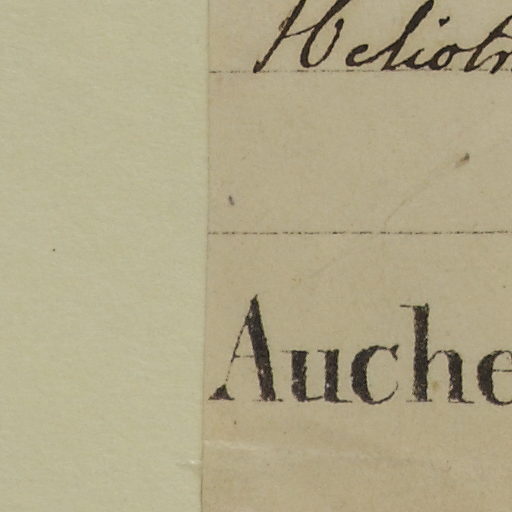 Heliotr
Auche